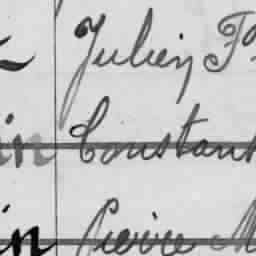 Julien F
in Constant
in Pierre M